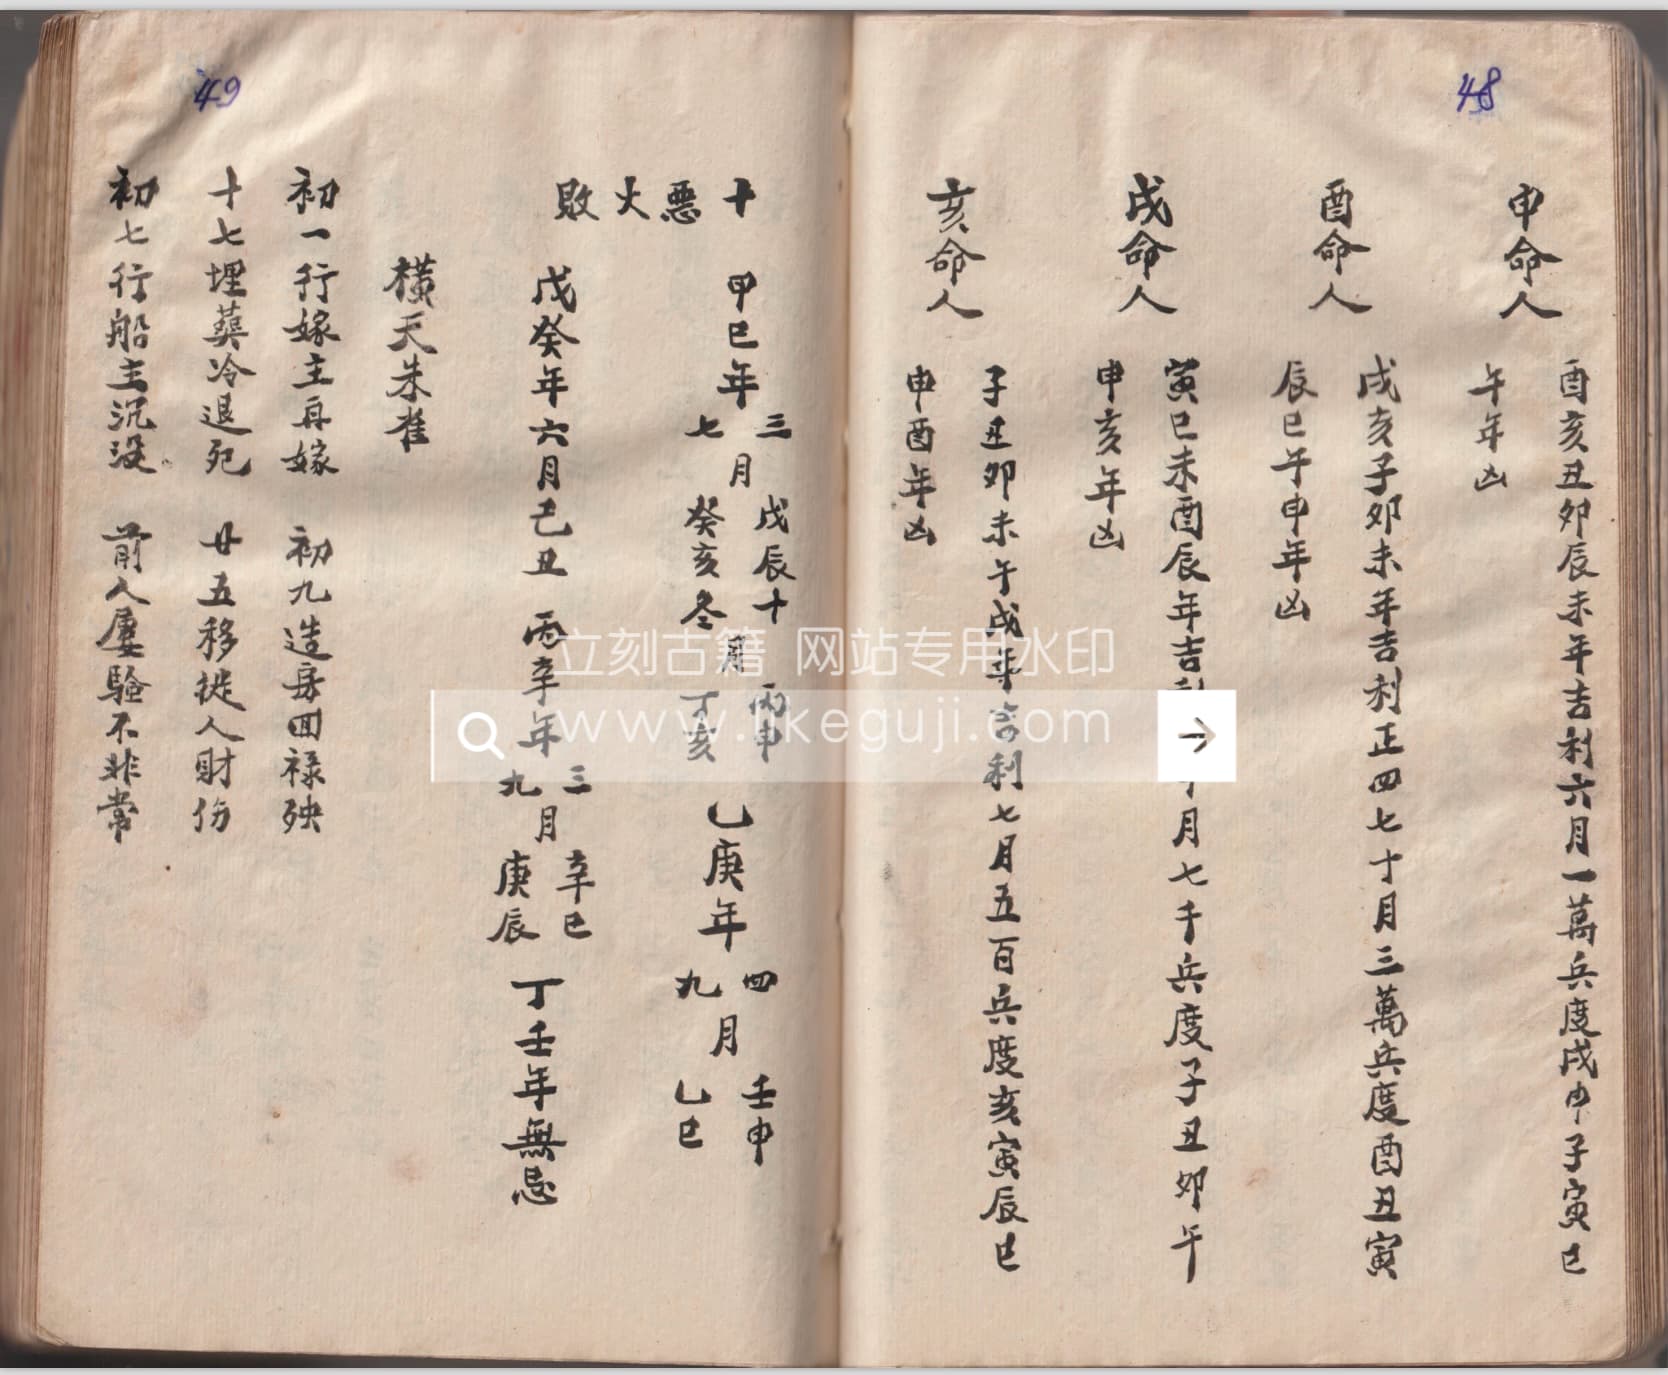 48
申命人
酉亥丑卯辰未年吉利六月一萬兵度戌申子寅巳
午年凶
酉命人
戌亥子卯未年吉利正四七十月三萬兵度酉丑寅
辰巳午申年凶
戌命人
寅巳未酉辰年吉利 月七千兵度子丑卯午
申亥年凶
亥命人
子丑卯未午戌年吉利七月五百兵度亥寅辰巳
申酉年凶
49
十惡火敗
甲巳年三七月戊辰癸亥十冬月丙申丁亥 乙庚年四九月壬申乙巳
戊癸年六月己丑 丙辛年三九月辛巳庚辰 丁壬年無忌
横天朱雀
初一行嫁主再嫁 初九造房囬禄殃
十七埋葬冷退死 廿五移徙人財伤
初七行船主沉没 前人屡驗不非常
立刻古籍 网站专用水印
www.likeguji.com